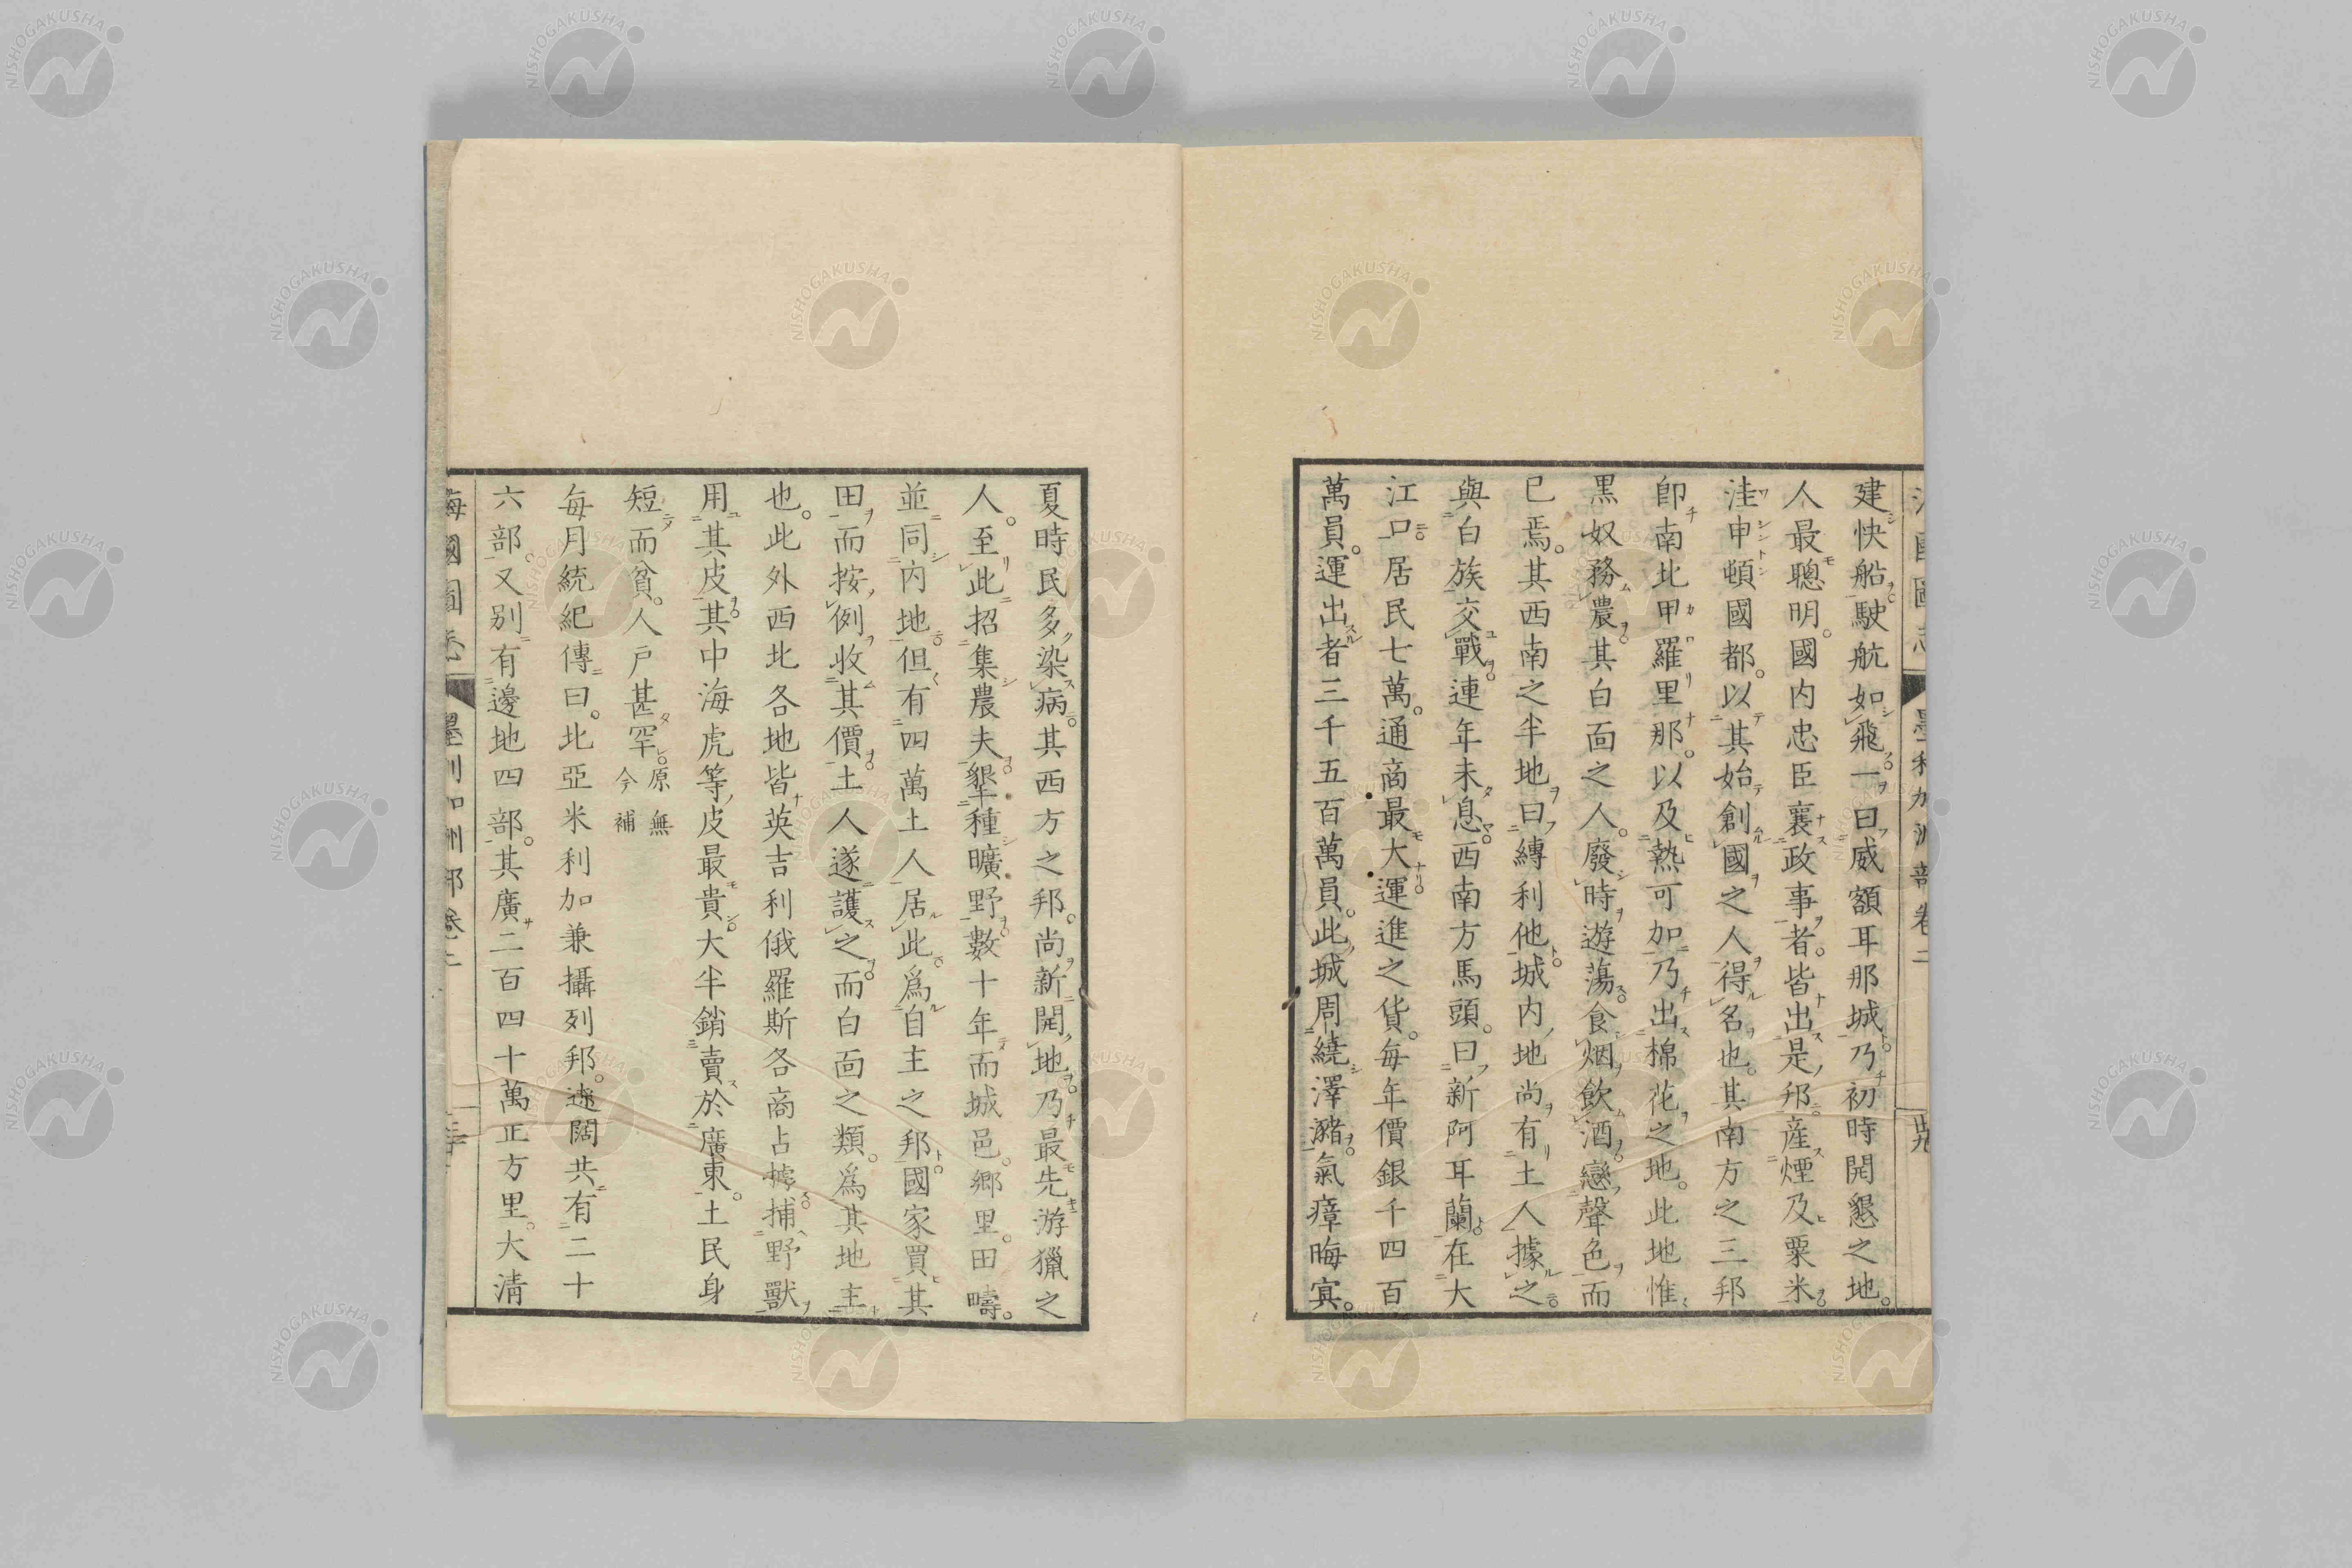 建快船。駛航如飛。一曰威額耳那城。乃初時開懇之地。
人最聰明。國內忠臣襄政事者。皆出是邦。產煙及粟米。
洼申頓國都。以其始創國之人得名也。其南方之三邦
卽南北甲羅里那。以及熱可加。乃出棉花之地。此地惟
黑奴務農。其白面之人。廢時遊蕩。食烟飲酒。戀聲色。而
已焉。其西南之半地。曰縛利他。城內地尚有土人據之。
與白族交戰。連年未息。西南方馬頭。曰新阿耳蘭。在大
江口。居民七萬。通商最大。運進之貨。每年價銀千四百
萬員。運出者三千五百萬員。此城周繞澤瀦。氣瘴晦寘。
夏時民多染病。其西方之邦。尚新開地。乃最先游獵之
人。至此招集農夫。墾種曠野。數十年而城邑。鄉里。田疇。
並同內地。但有四萬土人居此。爲自主之邦。國家買其
田而按例收其價。土人遂護之。而白面之類。爲其地主
也。此外西北各地皆英吉利俄羅斯各商占據。捕野獸
用其皮。其中海虎等皮最貴。大半銷賣於廣東。土民身
短而貧。人戶甚罕。原無今補
每月統紀傳曰。北亞米利加兼攝列邦。遼闊共有二十
六部。又别有邊地四部。其廣二百四十萬正方里。大淸
NISHOGAKUSHA